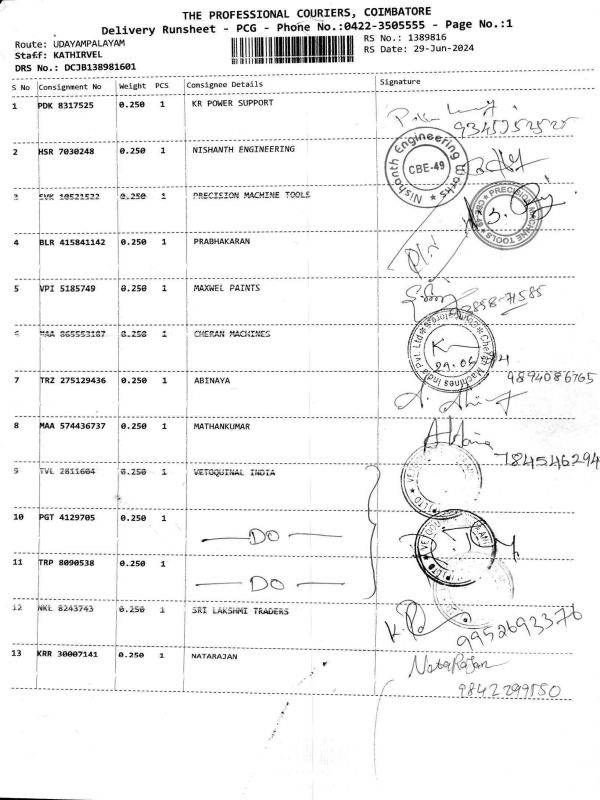 THE PROFESSIONAL COURIERS, COIMBATORE
Delivery Runsheet - PCG - Phone No.:0422-3505555 - Page No.:1
Route: UDAYAMPALAYAM
RS No.: 1389816
Staff: KATHIRVEL
RS Date: 29-Jun-2024
DRS No.: DCJB138981601
S No Consignment No Weight PCS Consignee Details Signature
1 PDK 8317525 0.250 1 KR POWER SUPPORT
2 HSR 7030248 0.250 1 NISHANTH ENGINEERING
Nishanth Engineering Works
CBE-49
3 SVK 10521522 0.250 1 PRECISION MACHINE TOOLS
PRECISION MACHINE TOOLS
4 BLR 415841142 0.250 1 PRABHAKARAN
5 VPI 5185749 0.250 1 MAXWEL PAINTS
98858-71585
6 MAA 865553187 0.250 1 CHERAN MACHINES
Cheran Machines India Pvt. Ltd
29.06
7 TRZ 275129436 0.250 1 ABINAYA
9894086765
8 MAA 574436737 0.250 1 MATHANKUMAR
784546294
9 TVL 2811604 0.250 1 VETOQUINAL INDIA
10 PGT 4129705 0.250 1
DO
11 TRP 8090538 0.250 1
DO
12 NKL 8243743 0.250 1 SRI LAKSHMI TRADERS
9952693376
13 KRR 30007141 0.250 1 NATARAJAN
NataRajan
9842299550